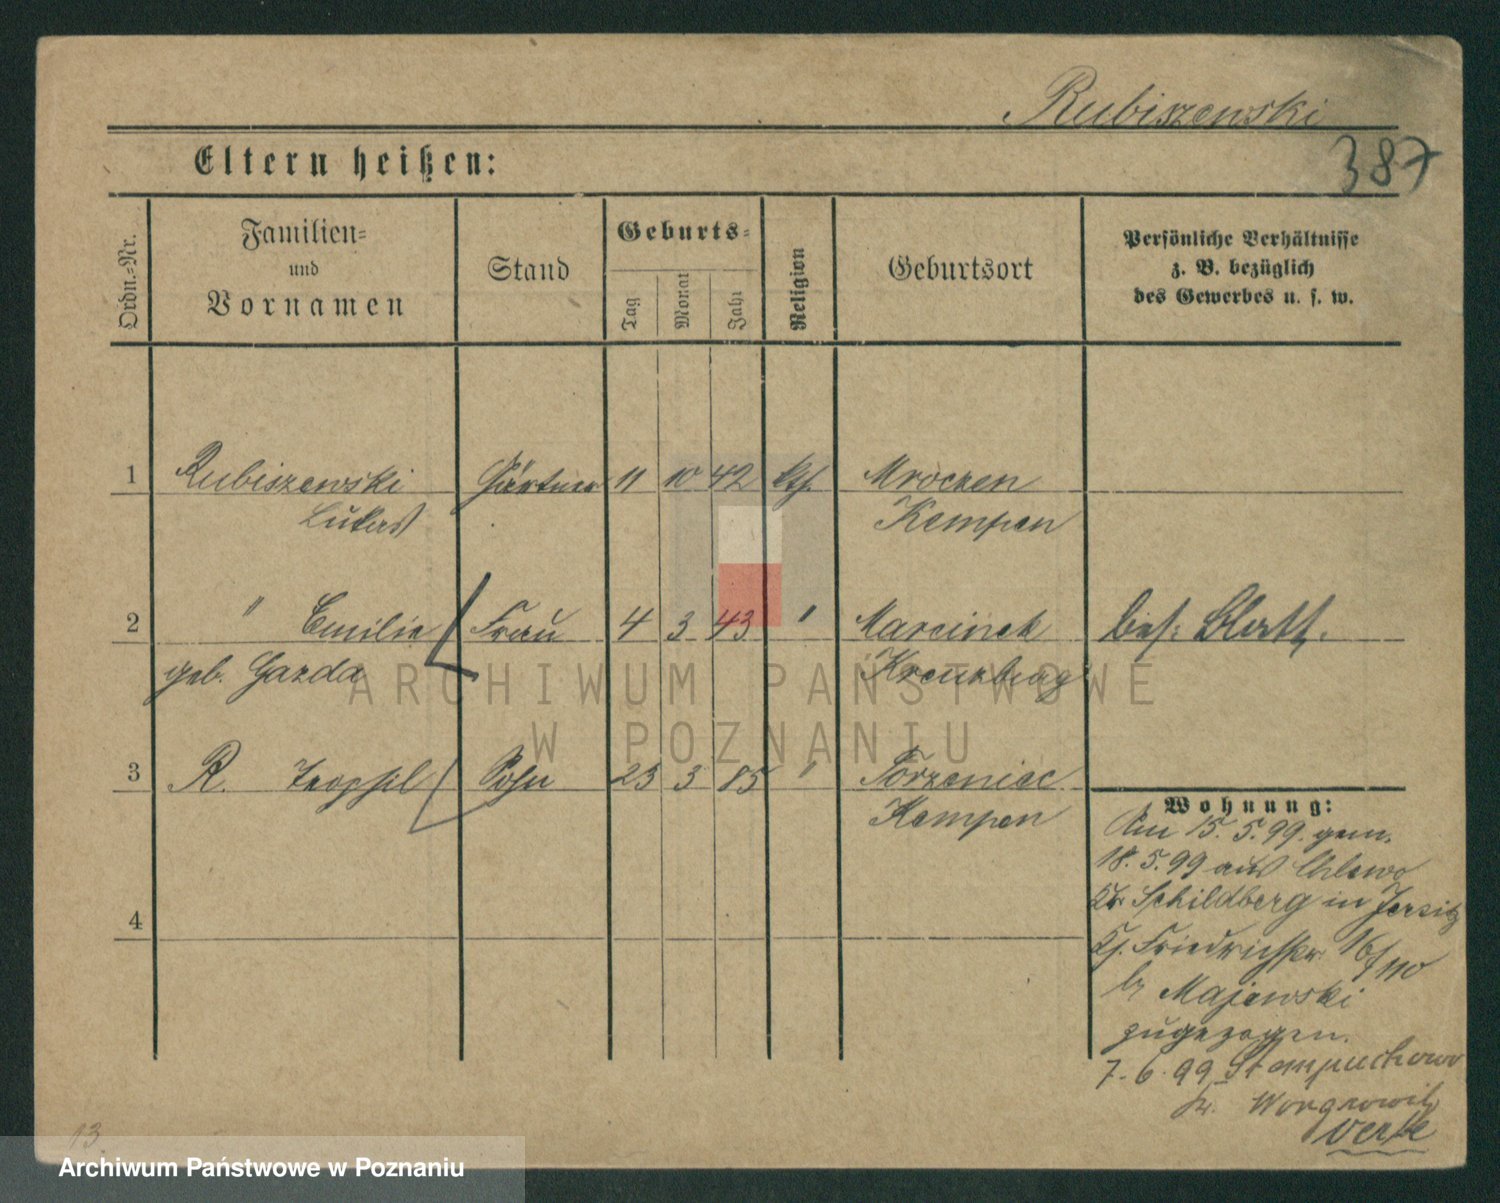 Rubiszewski
387
Eltern heißen:
Ordn.-Nr.
Familien-
und
Vornamen
Stand
Geburts-
Tag
Monat
Jahr
Religion
Geburtsort
Persönliche Verhältnisse
z. B. bezüglich
des Gewerbes u. s. w.
1 Rubiszewski Gärtner 11 10 42 kth. Mroczen
Lukas Kempen
2 " Emilie Frau 4 3 43 " Marcinek bes. Blatt.
geb. Gazda Kreuzburg
3 R. Teophil Sohn 23 3 85 " Torzeniec
Kempen
Wohnung:
Am 15. 5. 99. gem.
18. 5. 99 aus Chlewo
Kr Schildberg in Jersitz
Friedrichstr 16/110
b Majewski
zugezogen.
7. 6. 99 Stempuchowo
Kr. Wongrowitz
verz
4
13
ARCHIWUM PAŃSTWOWE
W POZNANIU
Archiwum Państwowe w Poznaniu